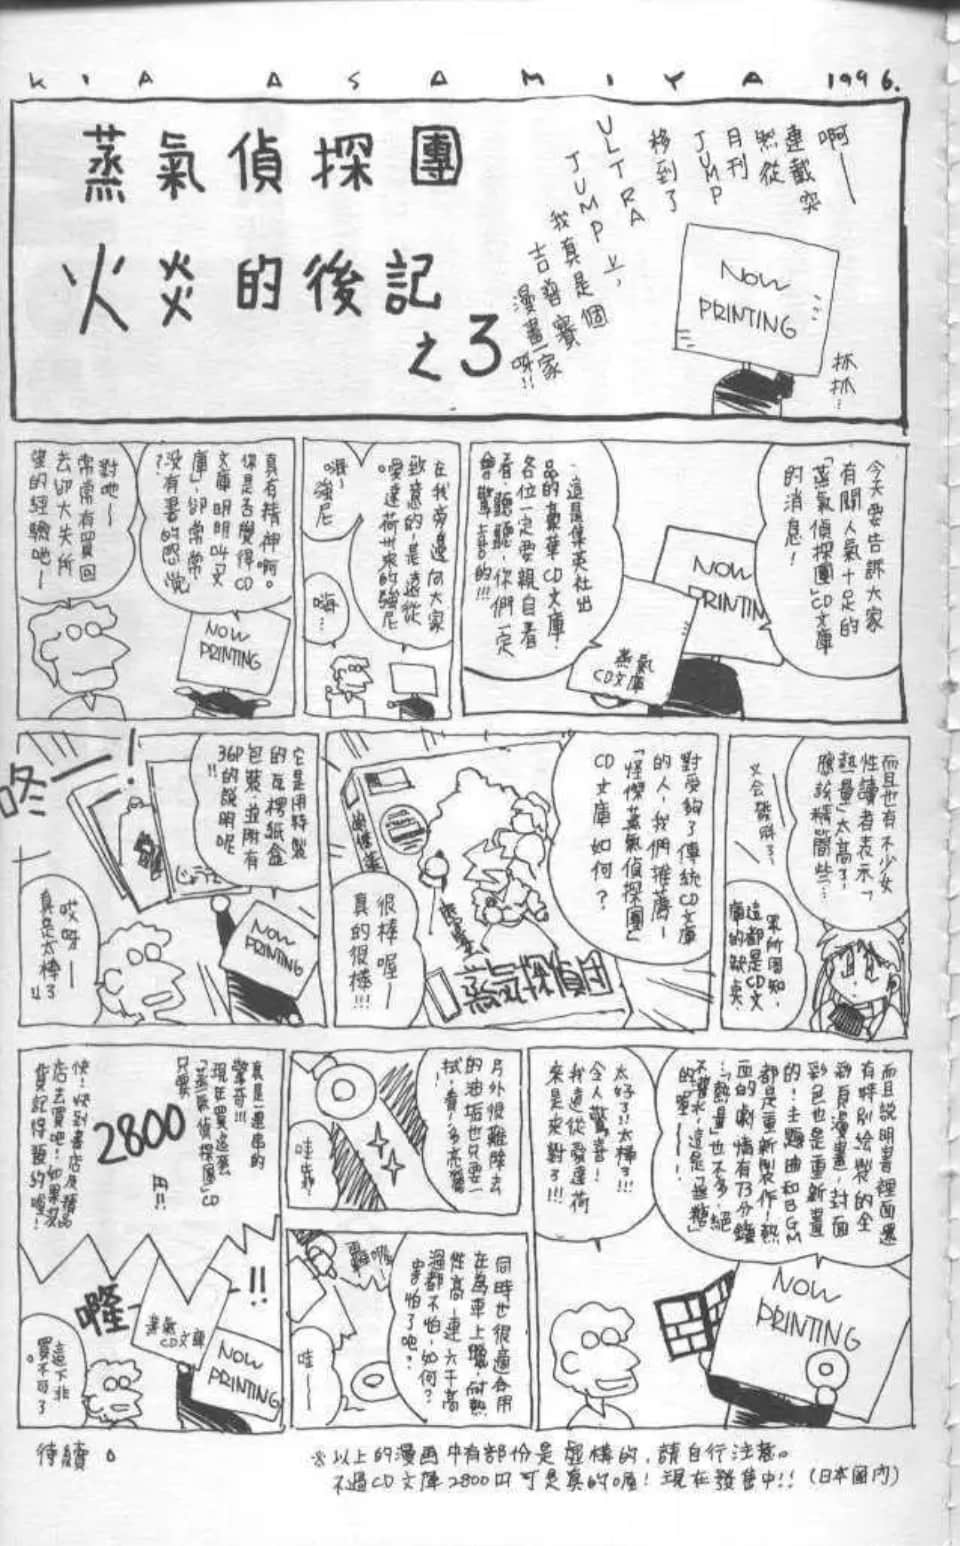 KIA ASAMIYA 1996.
蒸氣偵探團
火炎的後記
之3
啊——
連載突
然從
月刊
JUMP
移到了
ULTRA
JUMP上，
我真是個
吉普賽
漫畫家
呀!!
NOW
PRINTING
抓
抓…
今天要告訴大家
有關人氣十足的
「蒸氣偵探團」CD文庫
的消息！
這是集英社出
品的豪華CD文庫．
各位一定要親自看
看．聽聽．你們一定
會驚喜的!!!
NOW
PRINTING
蒸氣
CD文庫
在我旁邊向大家
致意的，是遠從
愛達荷州來的強尼
。
哦~
強尼
嗨
…
真有精神啊。
你是否覺得CD
文庫明明叫文
庫」，卻常常
沒有書的感覺
？
對吔~
常常有買回
去卻大失所
望的經驗吔~
NOW
PRINTING
而且也有不少女
性讀者表示「
熱量太高了，
應該精簡些…
又會發胖了，
眾所周知，
這都是CD文
庫的缺点．
對受夠了傳統CD文庫
的人，我們推薦~
「怪傑蒸氣偵探團」
CD文庫如何？
很棒喔~
真的很棒!!!
蒸氣探偵団
它是用特製
的瓦楞紙盒
包裝，並附有
36P的說明呢
!!
咚一！
哎呀——
真是太棒了
NOW
PRINTING
而且說明書裡面還
有特別繪製的全
彩頁漫畫，封面
彩色也是重新畫
的！主題曲和BGM
都是重新製作！熱
西的劇情有73分鐘
…「熱量」也不多，絕
不摻水，這是「無糖」
的喔——！
太好了!!太棒了!!!
令人驚喜！
我遠從愛達荷
來是來對了!!!
NOW
PRINTING
另外很難除去
的油垢也只要一
拭，看！多亮麗
！
哇啡！
同時也很適合用
在寫車上蠟，耐熱
性高！連六千高
溫都不怕，如何？
害怕了吧？
哇——
真是一連串的
驚奇!!!
現在買這套
「蒸氣偵探團」CD
只要
2800
円!!
快！快到書店及精品
店去買吧！如果沒
貨記得預約喔！
噹
!!
蒸氣
CD文庫
NOW
PRINTING
這下非
買不可了
。
待續。
※以上的漫画中有部份是虛構的，請自行注意。
不過CD文庫2800円可是真的喔！現在發售中!!（日本國內）